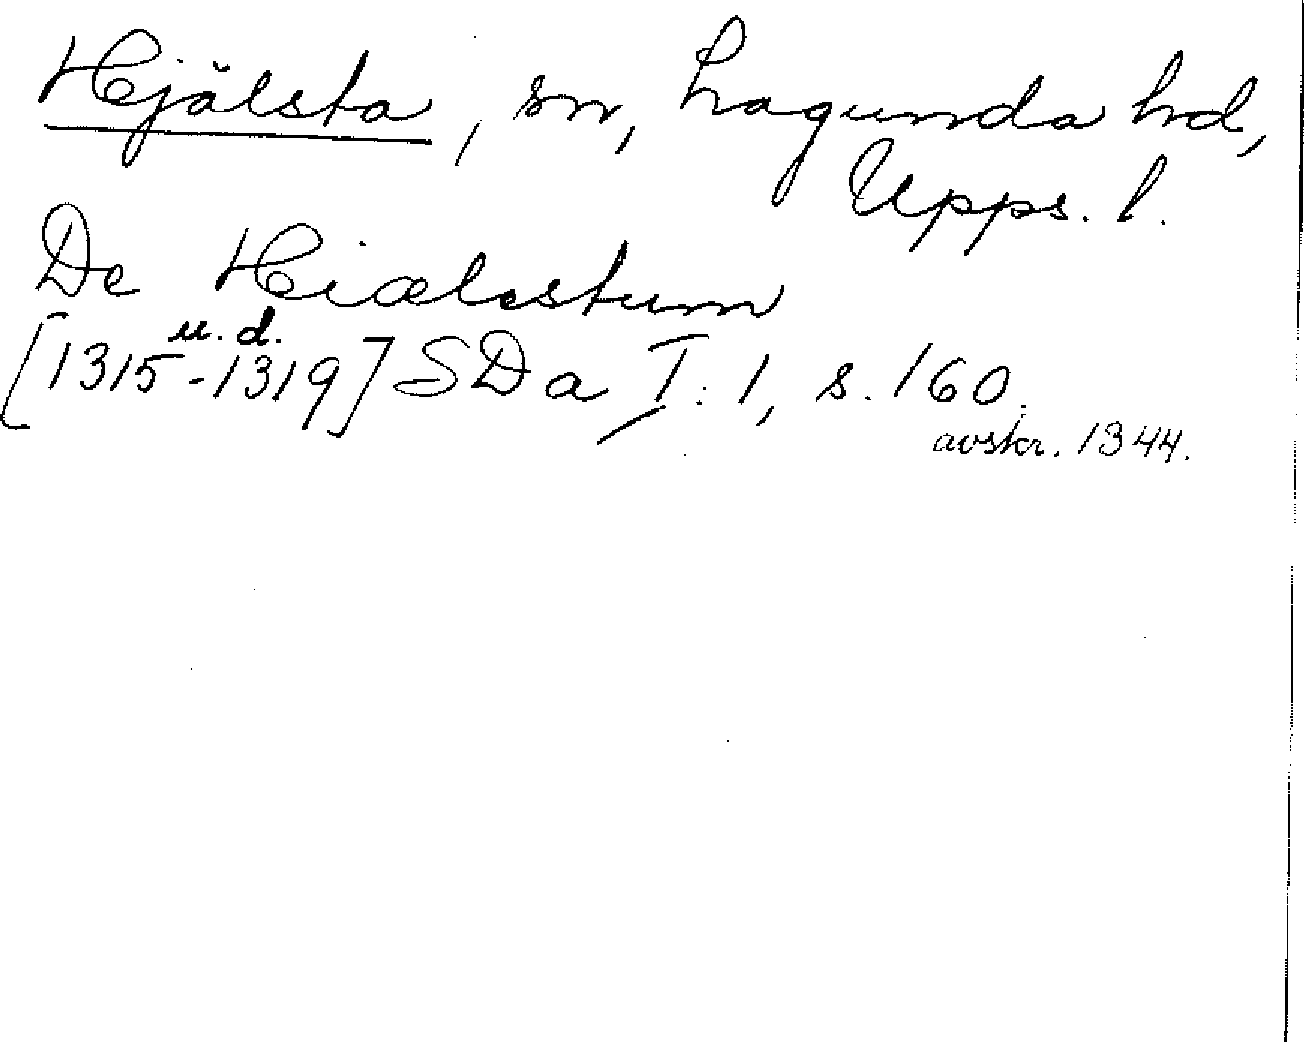 Hjälsta, sn, Lagunda hd,
Upps. l.
De Hiælestum
u. d.
[1315-1319] SDa I:1, s. 160.
avskr. 1344.